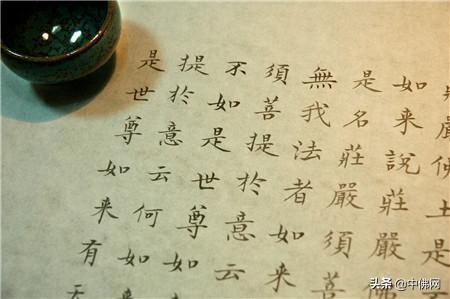 嚴佛土是
如来說莊嚴
是名莊嚴須菩
無我法者如来
須菩提於意云
不如是世尊如来
提於意云何如来
是世尊如来有天
头条 @中佛网